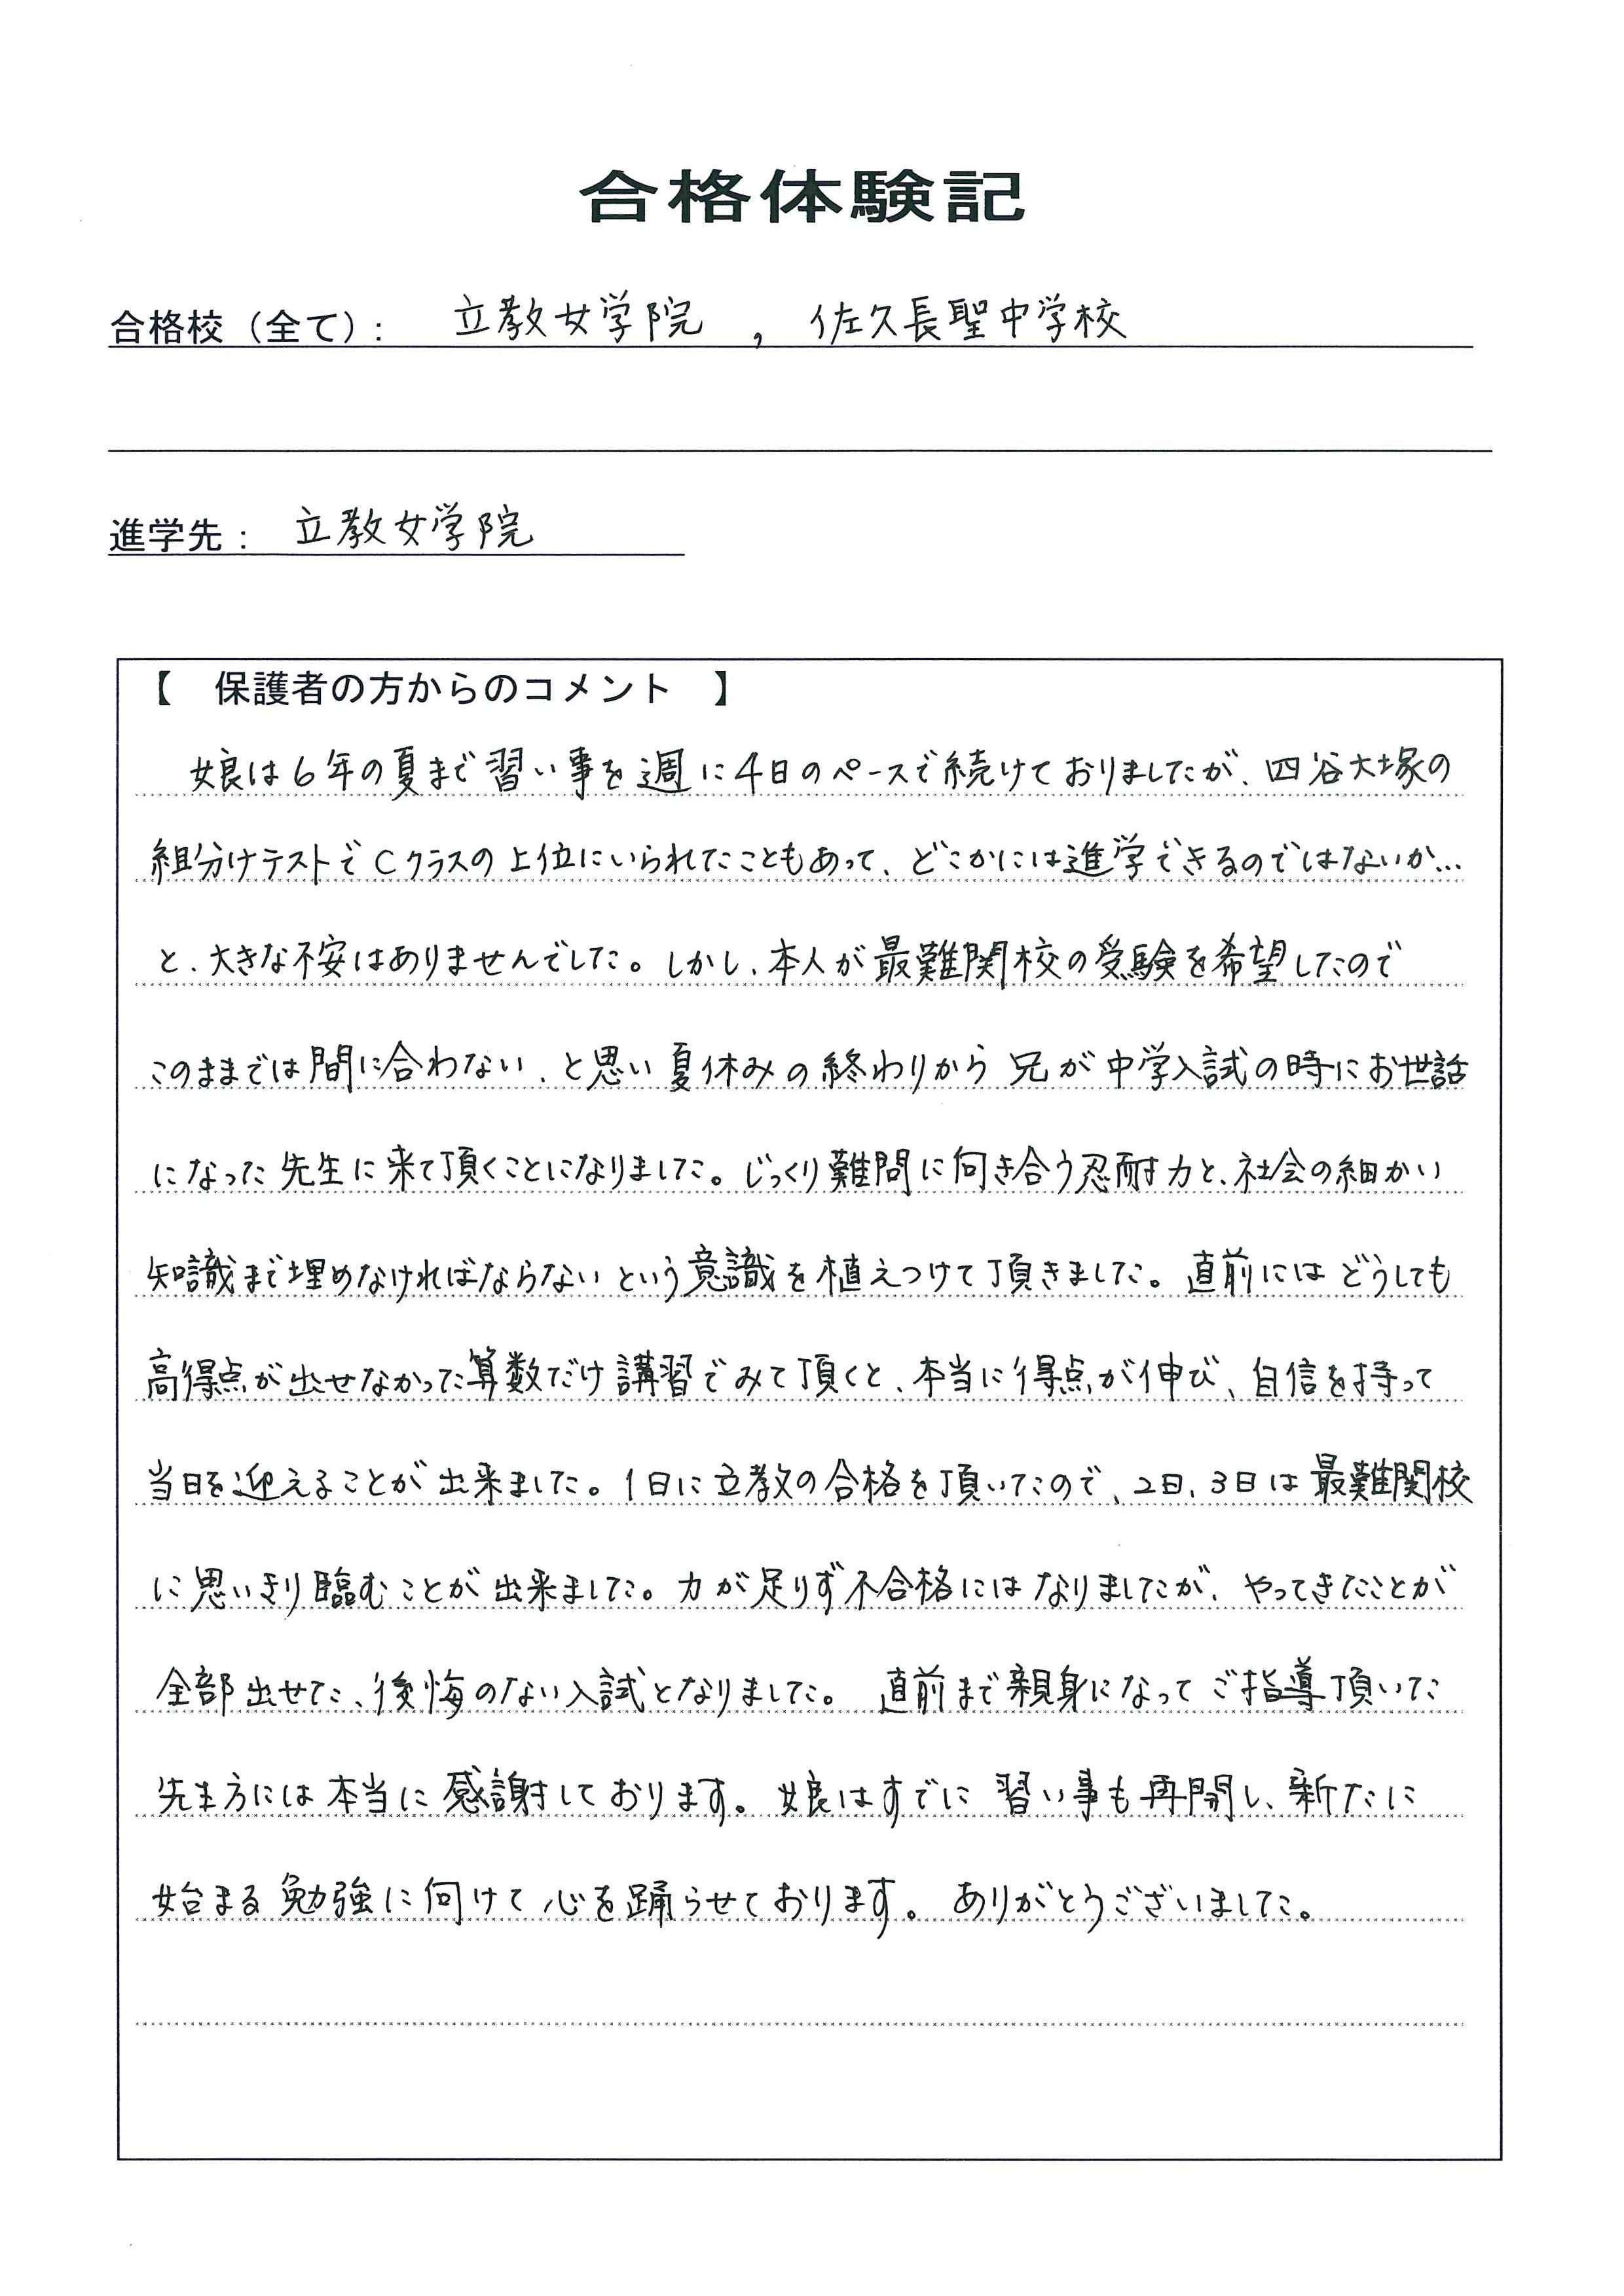 合格体験記
合格校（全て）： 立教女学院 , 佐久長聖中学校
進学先： 立教女学院
【　保護者の方からのコメント　】
娘は6年の夏まで習い事を週に4日のペースで続けておりましたが、四谷大塚の
組分けテストでCクラスの上位にいられたこともあって、どこかには進学できるのではないか…
と、大きな不安はありませんでした。しかし、本人が最難関校の受験を希望したので
このままでは間に合わない、と思い夏休みの終わりから兄が中学入試の時にお世話
になった先生に来て頂くことになりました。じっくり難問に向き合う忍耐力と、社会の細かい
知識まで埋めなければならないという意識を植えつけて頂きました。直前にはどうしても
高得点が出せなかった算数だけ講習でみて頂くと、本当に得点が伸び、自信を持って
当日を迎えることが出来ました。1日に立教の合格を頂いたので、2日、3日は最難関校
に思いきり臨むことが出来ました。力が足りず不合格にはなりましたが、やってきたことが
全部出せた、後悔のない入試となりました。直前まで親身になってご指導頂いた
先生方には本当に感謝しております。娘はすでに習い事も再開し、新たに
始まる勉強に向けて心を踊らせております。ありがとうございました。